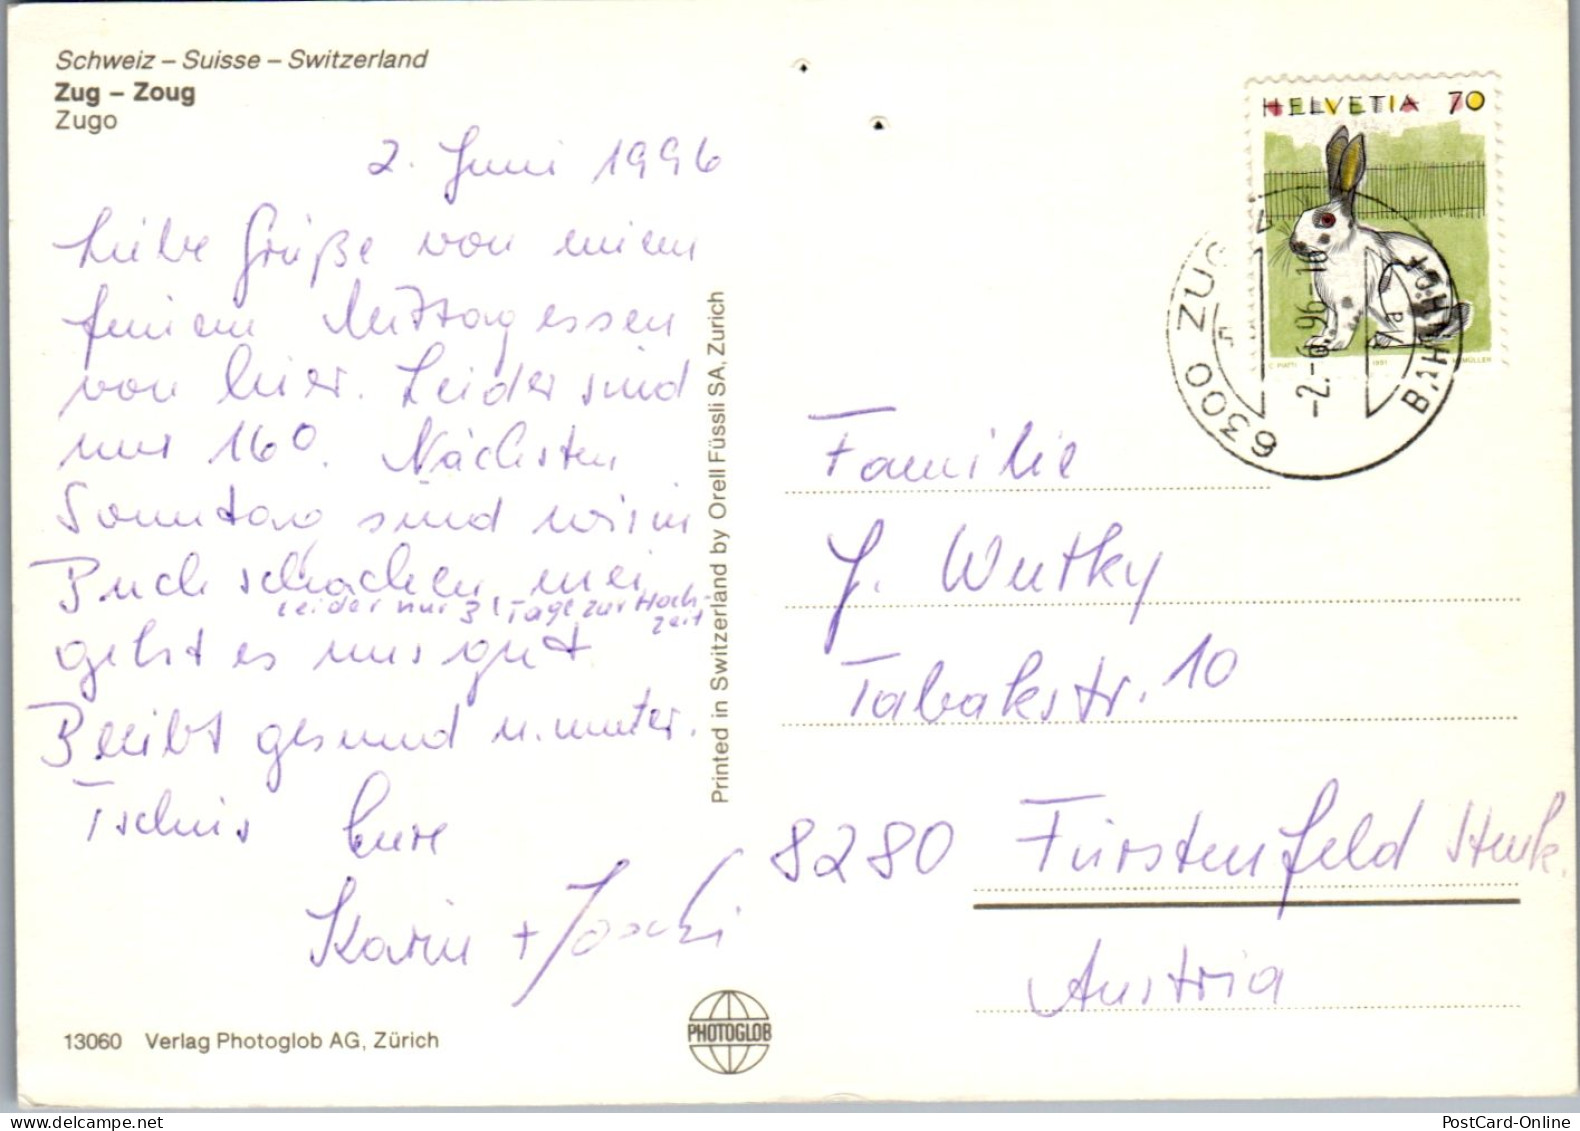 Schweiz – Suisse – Switzerland
Zug – Zoug
Zugo
2. Juni 1996
Liebe Grüße von einem
feinem Mittagessen
von hier. Leider sind
nur 160. Nächsten
Sonntag sind wir in
Buchschachen
leider nur 3 Tage zur Hoch-
zeit
geht es uns gut
Bleibt gesund u. munter.
Tschüs Eure
Karin + Joschi
13060 Verlag Photoglob AG, Zürich
PHOTOGLOB
Printed in Switzerland by Orell Füssli SA, Zurich
HELVETIA 70
1991
MÜLLER
6300 ZUG
-2.-6.96-16
BAHNHOF
Familie
J. Wutky
Tabakstr. 10
8280 Fürstenfeld Stmk.
Austria
PostCard-Online